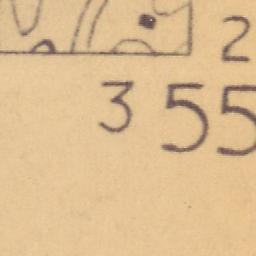 2
3 55